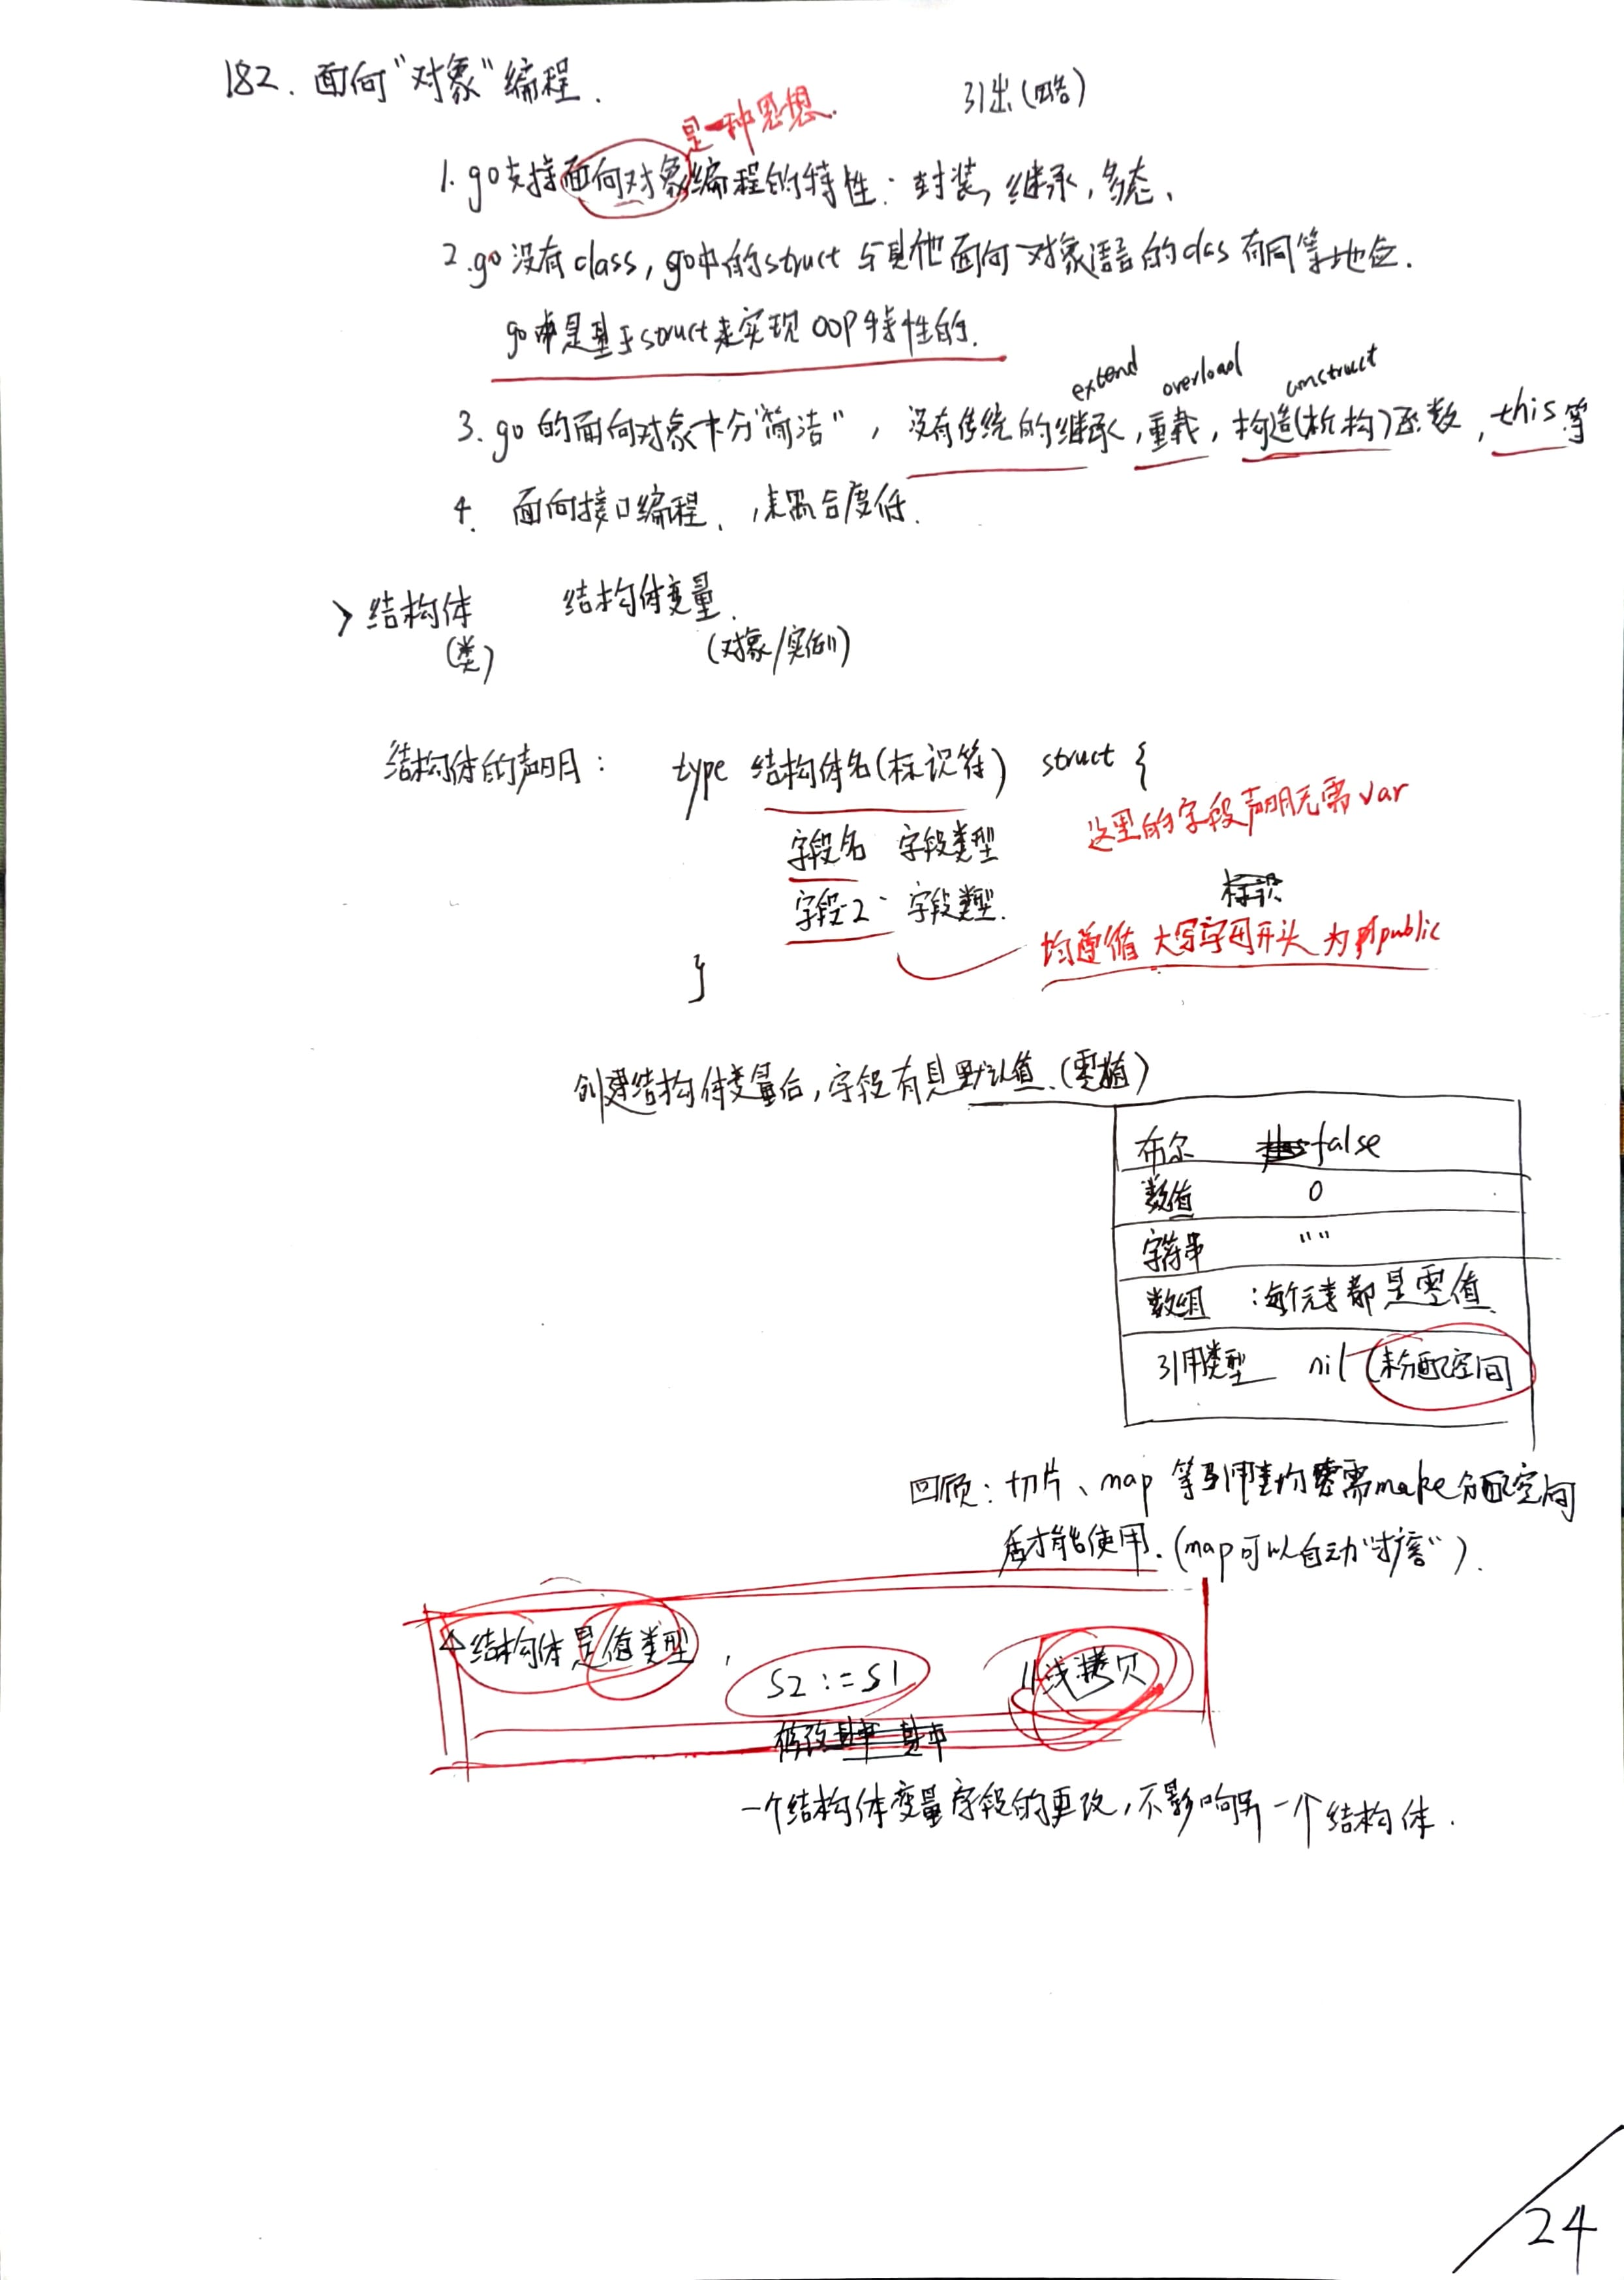 182. 面向“对象”编程. 引出(略)
是一种思想.
1. go支持面向对象编程的特性: 封装, 继承, 多态、
2. go 没有 class, go中的struct 与其他面向对象语言的 clas 有同等地位.
go 是基于struct来实现 OOP特性的.
extend overload construct
3. go 的面向对象十分“简洁”, 没有传统的继承, 重载, 构造(析构)函数, this 等
4. 面向接口编程, 耦合度低.
> 结构体 结构体变量.
(类) (对象/实例)
结构体的声明: type 结构体名(标识符) struct {
这里的字段声明无需var
字段名 字段类型
字段2 字段类型.
均遵循 大写字母开头 为 public
}
创建结构体变量后, 字段有其默认值.(零值)
布尔 false
数值 0
字符串 ""
数组 :每个元素都是零值.
引用类型 nil (未分配空间
回顾: 切片、map 等引用 均 需make分配空间
后才能使用. (map可以自动“扩容”).
结构体是值类型. S2 := S1 //浅拷贝
一个结构体变量字段的更改, 不影响另一个结构体.
24